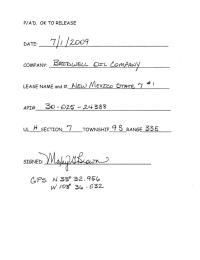 P/A'D, OK TO RELEASE
DATE: 7/1/2009
COMPANY: BRIDWELL OIL COMPANY
LEASE NAME and #: NEW MEXICO STATE 7 #1
API# 30-025-24388
UL H SECTION 7 TOWNSHIP 9S RANGE 335
SIGNED:
GPS N 33° 32.956
W 103° 36.032